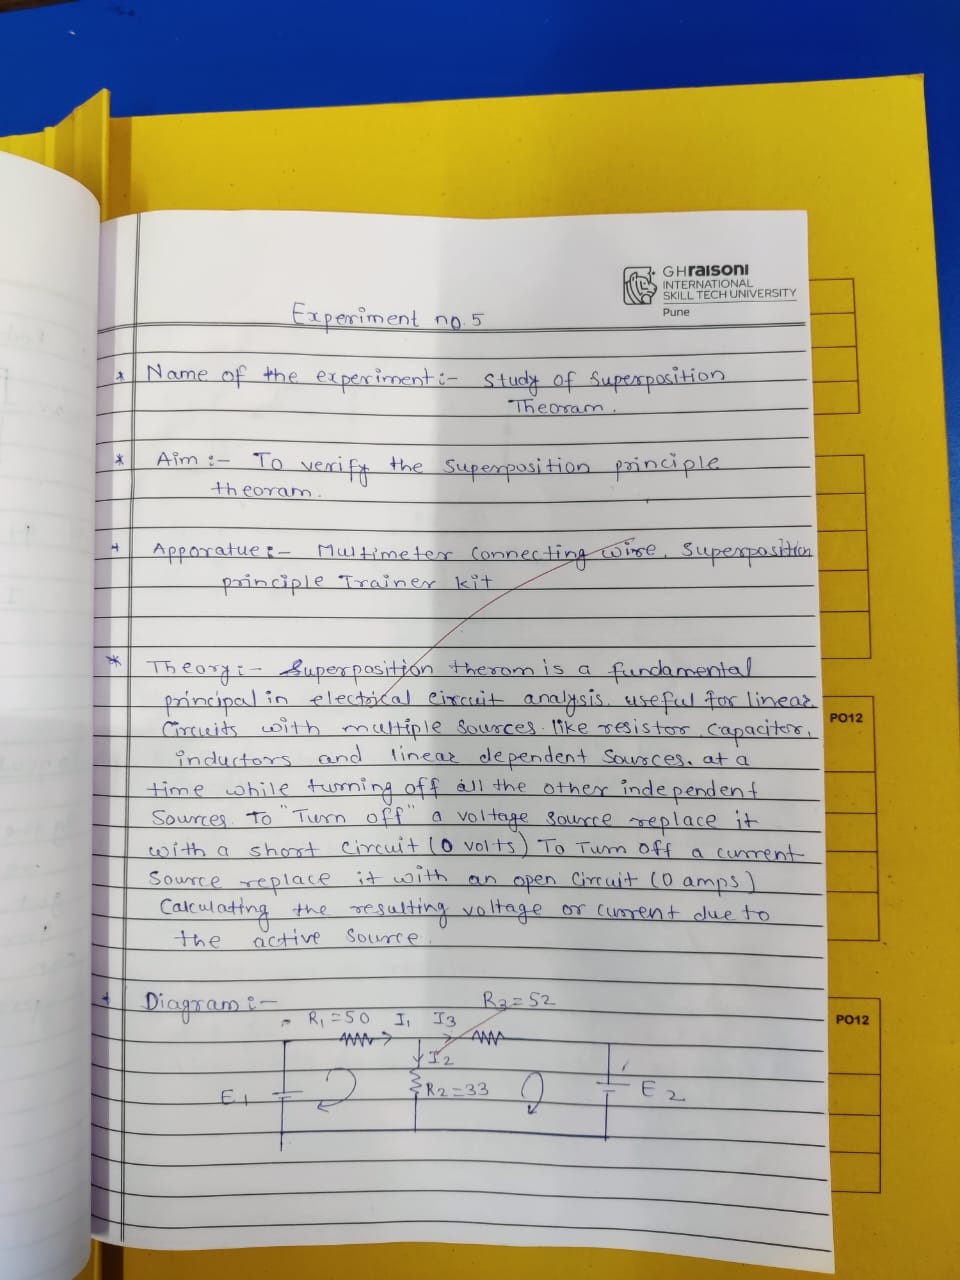 GHRaisoni
INTERNATIONAL
SKILL TECH UNIVERSITY
Pune
Experiment no. 5
* Name of the experiment :- Study of Superposition
Theoram.
* Aim :- To verify the superposition principle
theoram.
* Apporatue :- Multimeter Connecting wire, Superposition
principle Trainer kit
* Theory :- Superposition therom is a fundamental
principal in electrical circuit analysis. useful for linear
Circuits with multiple sources. like resistor, capacitor,
inductors and linear dependent Sources. at a
time while turning off all the other independent
Sources. To "Turn off" a voltage source replace it
with a short circuit (0 volts) To Turn off a current
Source replace it with an open circuit (0 amps)
Calculating the resulting voltage or current due to
the active source.
* Diagram :-
R3=52
R1=50 I1 I3
I2
R2=33
E1
E2
PO12
PO12